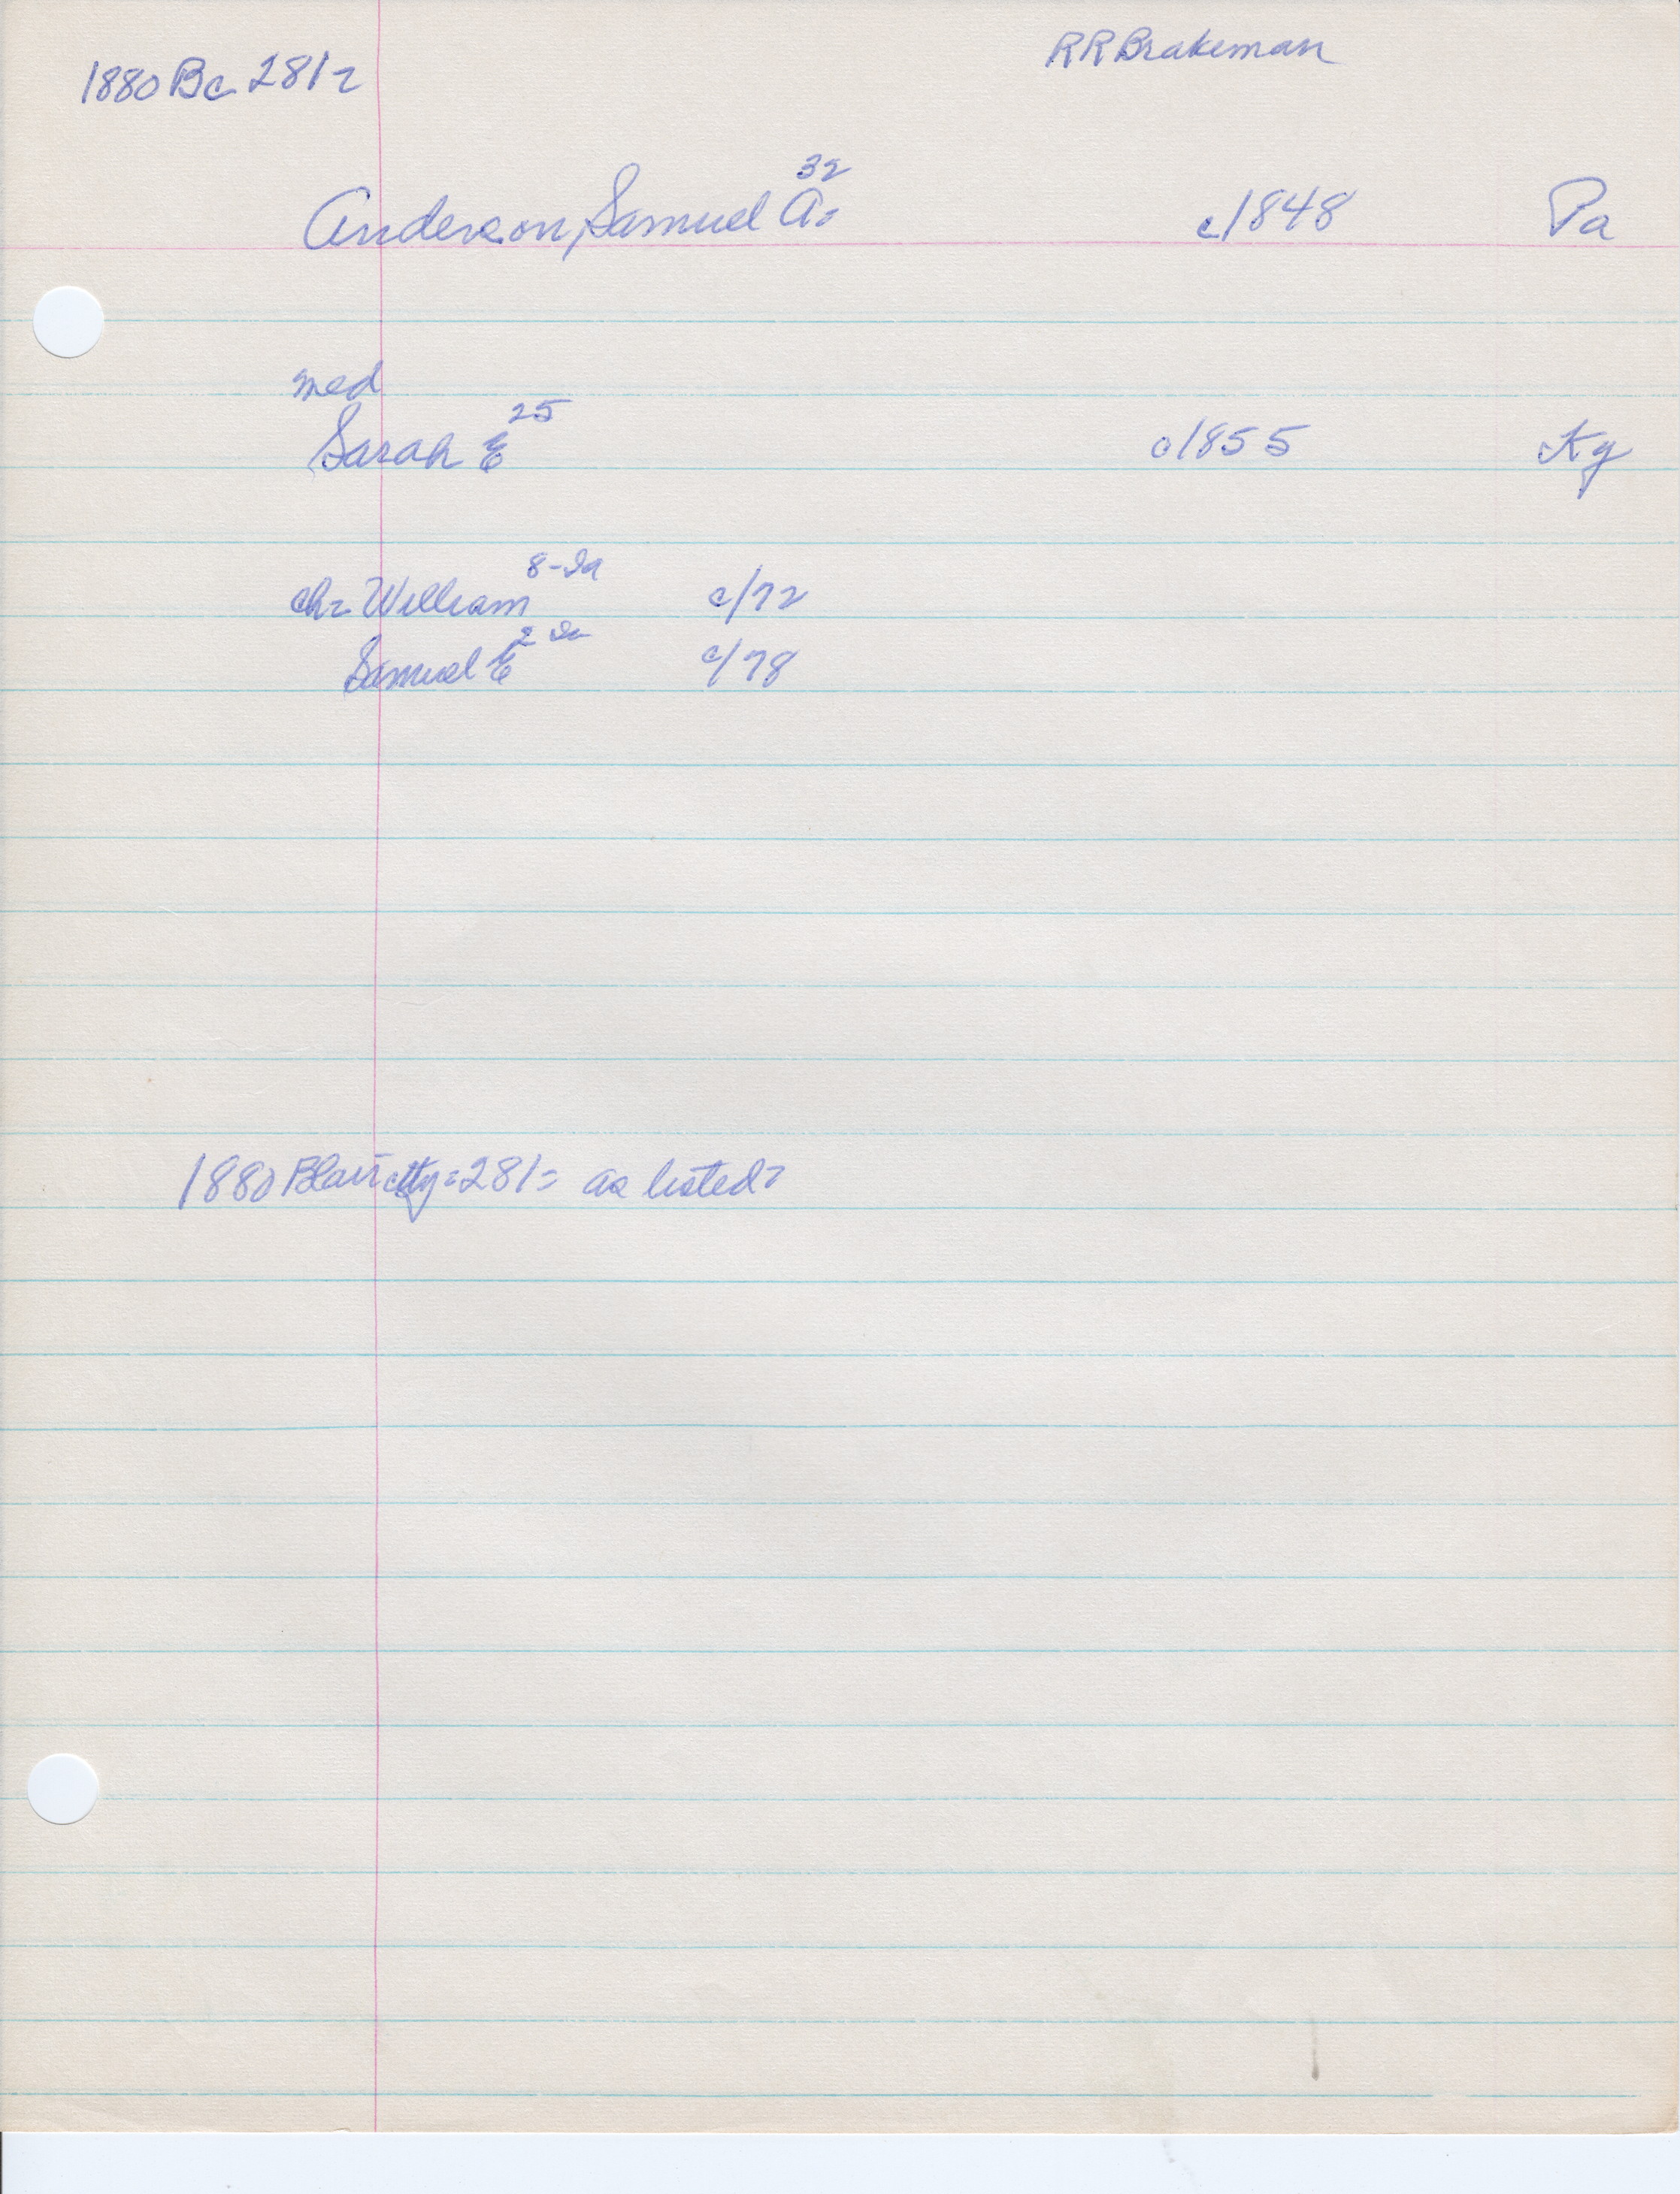 RR Brakeman
1880 Bc 281=
32
Anderson, Samuel A. c1848 Pa
med
25
Sarah E c1855 Ky
8-Ia
ch= William c/72
2 Ia
Samuel E c/78
1880 Blair ctty=281= as listed=